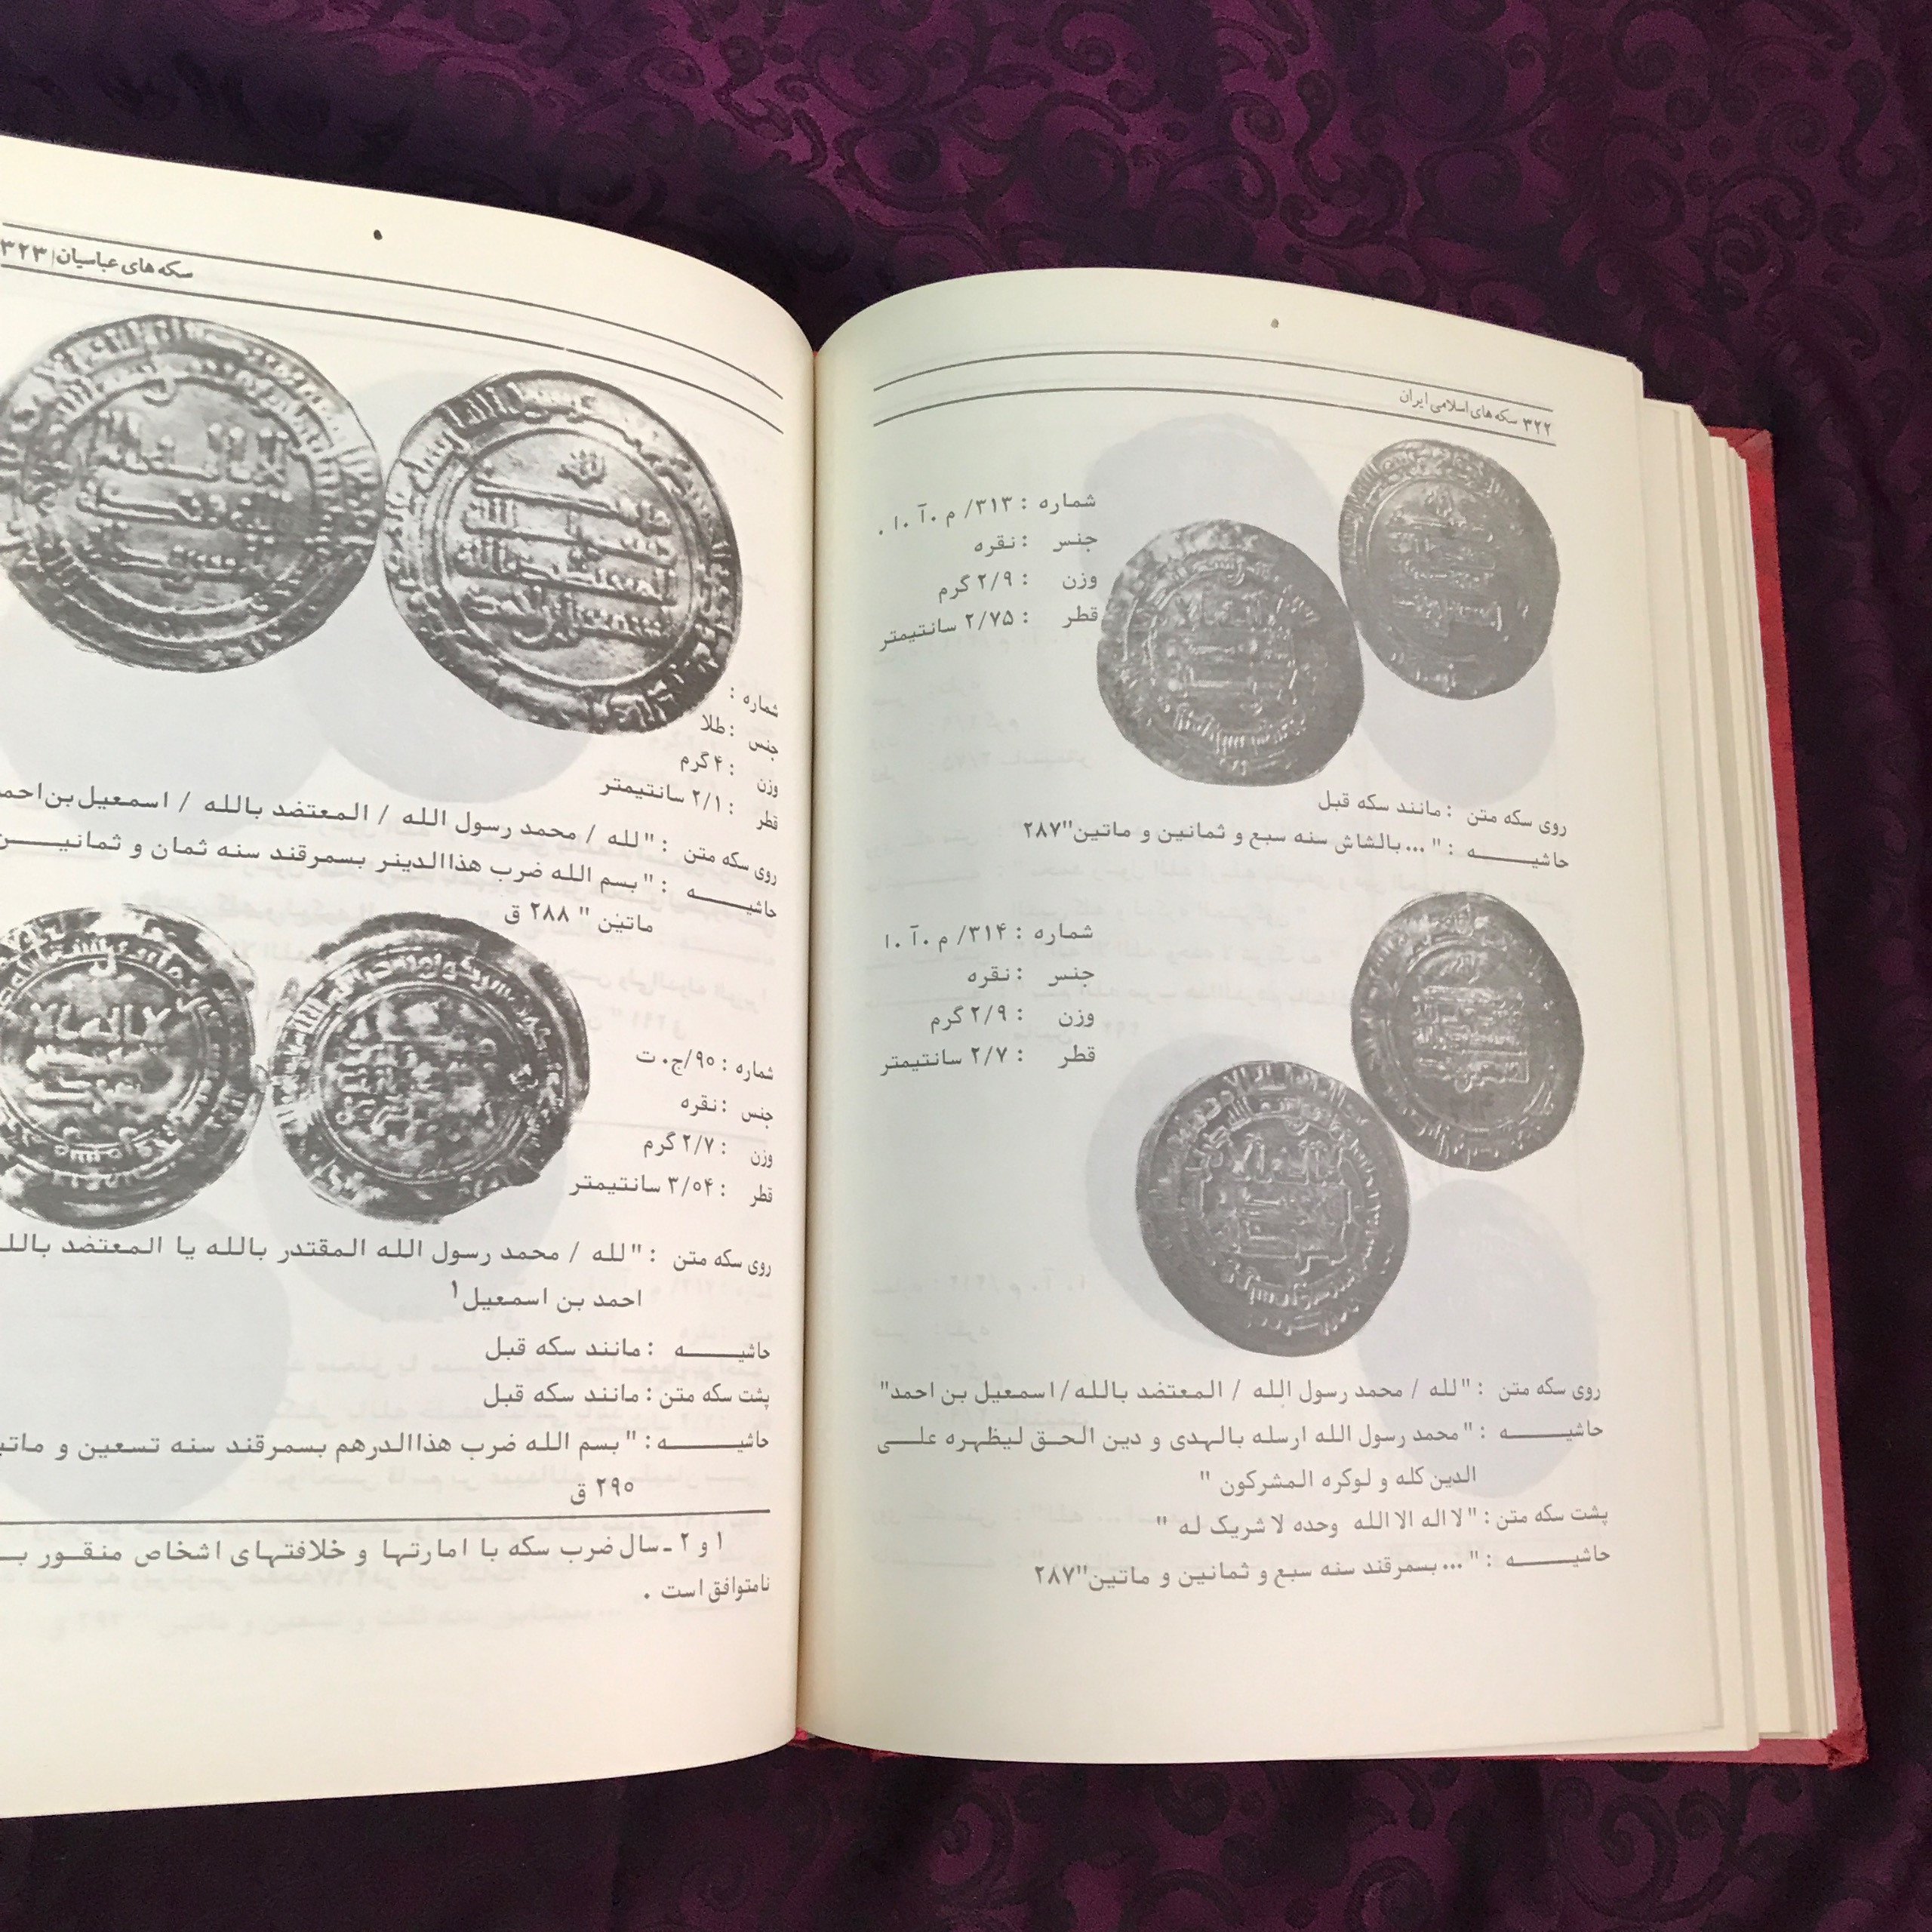 ۳۲۲ سکه های اسلامی ایران
شماره : ۳۱۳/ م .آ .ا .
جنس : نقره
وزن : ۲/۹ گرم
قطر : ۲/۷۵ سانتیمتر
روی سکه متن : مانند سکه قبل
حاشیــــــه : " ... بالشاش سنه سبع و ثمانین و ماتین"۲۸۷
شماره : ۳۱۴/ م .آ .ا
جنس : نقره
وزن : ۲/۹ گرم
قطر : ۲/۷ سانتیمتر
روی سکه متن : "لله / محمد رسول الله / المعتضد بالله/اسمعیل بن احمد"
حاشیــــــه : "محمد رسول الله ارسله بالهدی و دین الحق لیظهره علــی
الدین کله و لوکره المشرکون "
پشت سکه متن : "لا اله الا الله وحده لا شریک له "
حاشیــــــه : " ... بسمرقند سنه سبع و ثمانین و ماتین"۲۸۷
سکه های عباسیان| ۳۲۳
شماره :
جنس : طلا
وزن : ۴ گرم
قطر : ۲/۱ سانتیمتر
روی سکه متن : "لله / محمد رسول الله / المعتضد بالله / اسمعیل بن احمد
حاشیــــــه : " بسم الله ضرب هذاالدینر بسمرقند سنه ثمان و ثمانیـــن
ماتین " ۲۸۸ ق
شماره : ۹۵/ج. ت
جنس : نقره
وزن : ۲/۷ گرم
قطر : ۳/۰۴ سانتیمتر
روی سکه متن : "لله / محمد رسول الله المقتدر بالله یا المعتضد بالله
احمد بن اسمعیل۱
حاشیــــــه : مانند سکه قبل
پشت سکه متن : مانند سکه قبل
حاشیــــــه : " بسم الله ضرب هذاالدرهم بسمرقند سنه تسعین و
۲۹۵ ق
۱ و ۲ ـ سال ضرب سکه با امارتها و خلافتهای اشخاص منقــور
نامتوافق است .